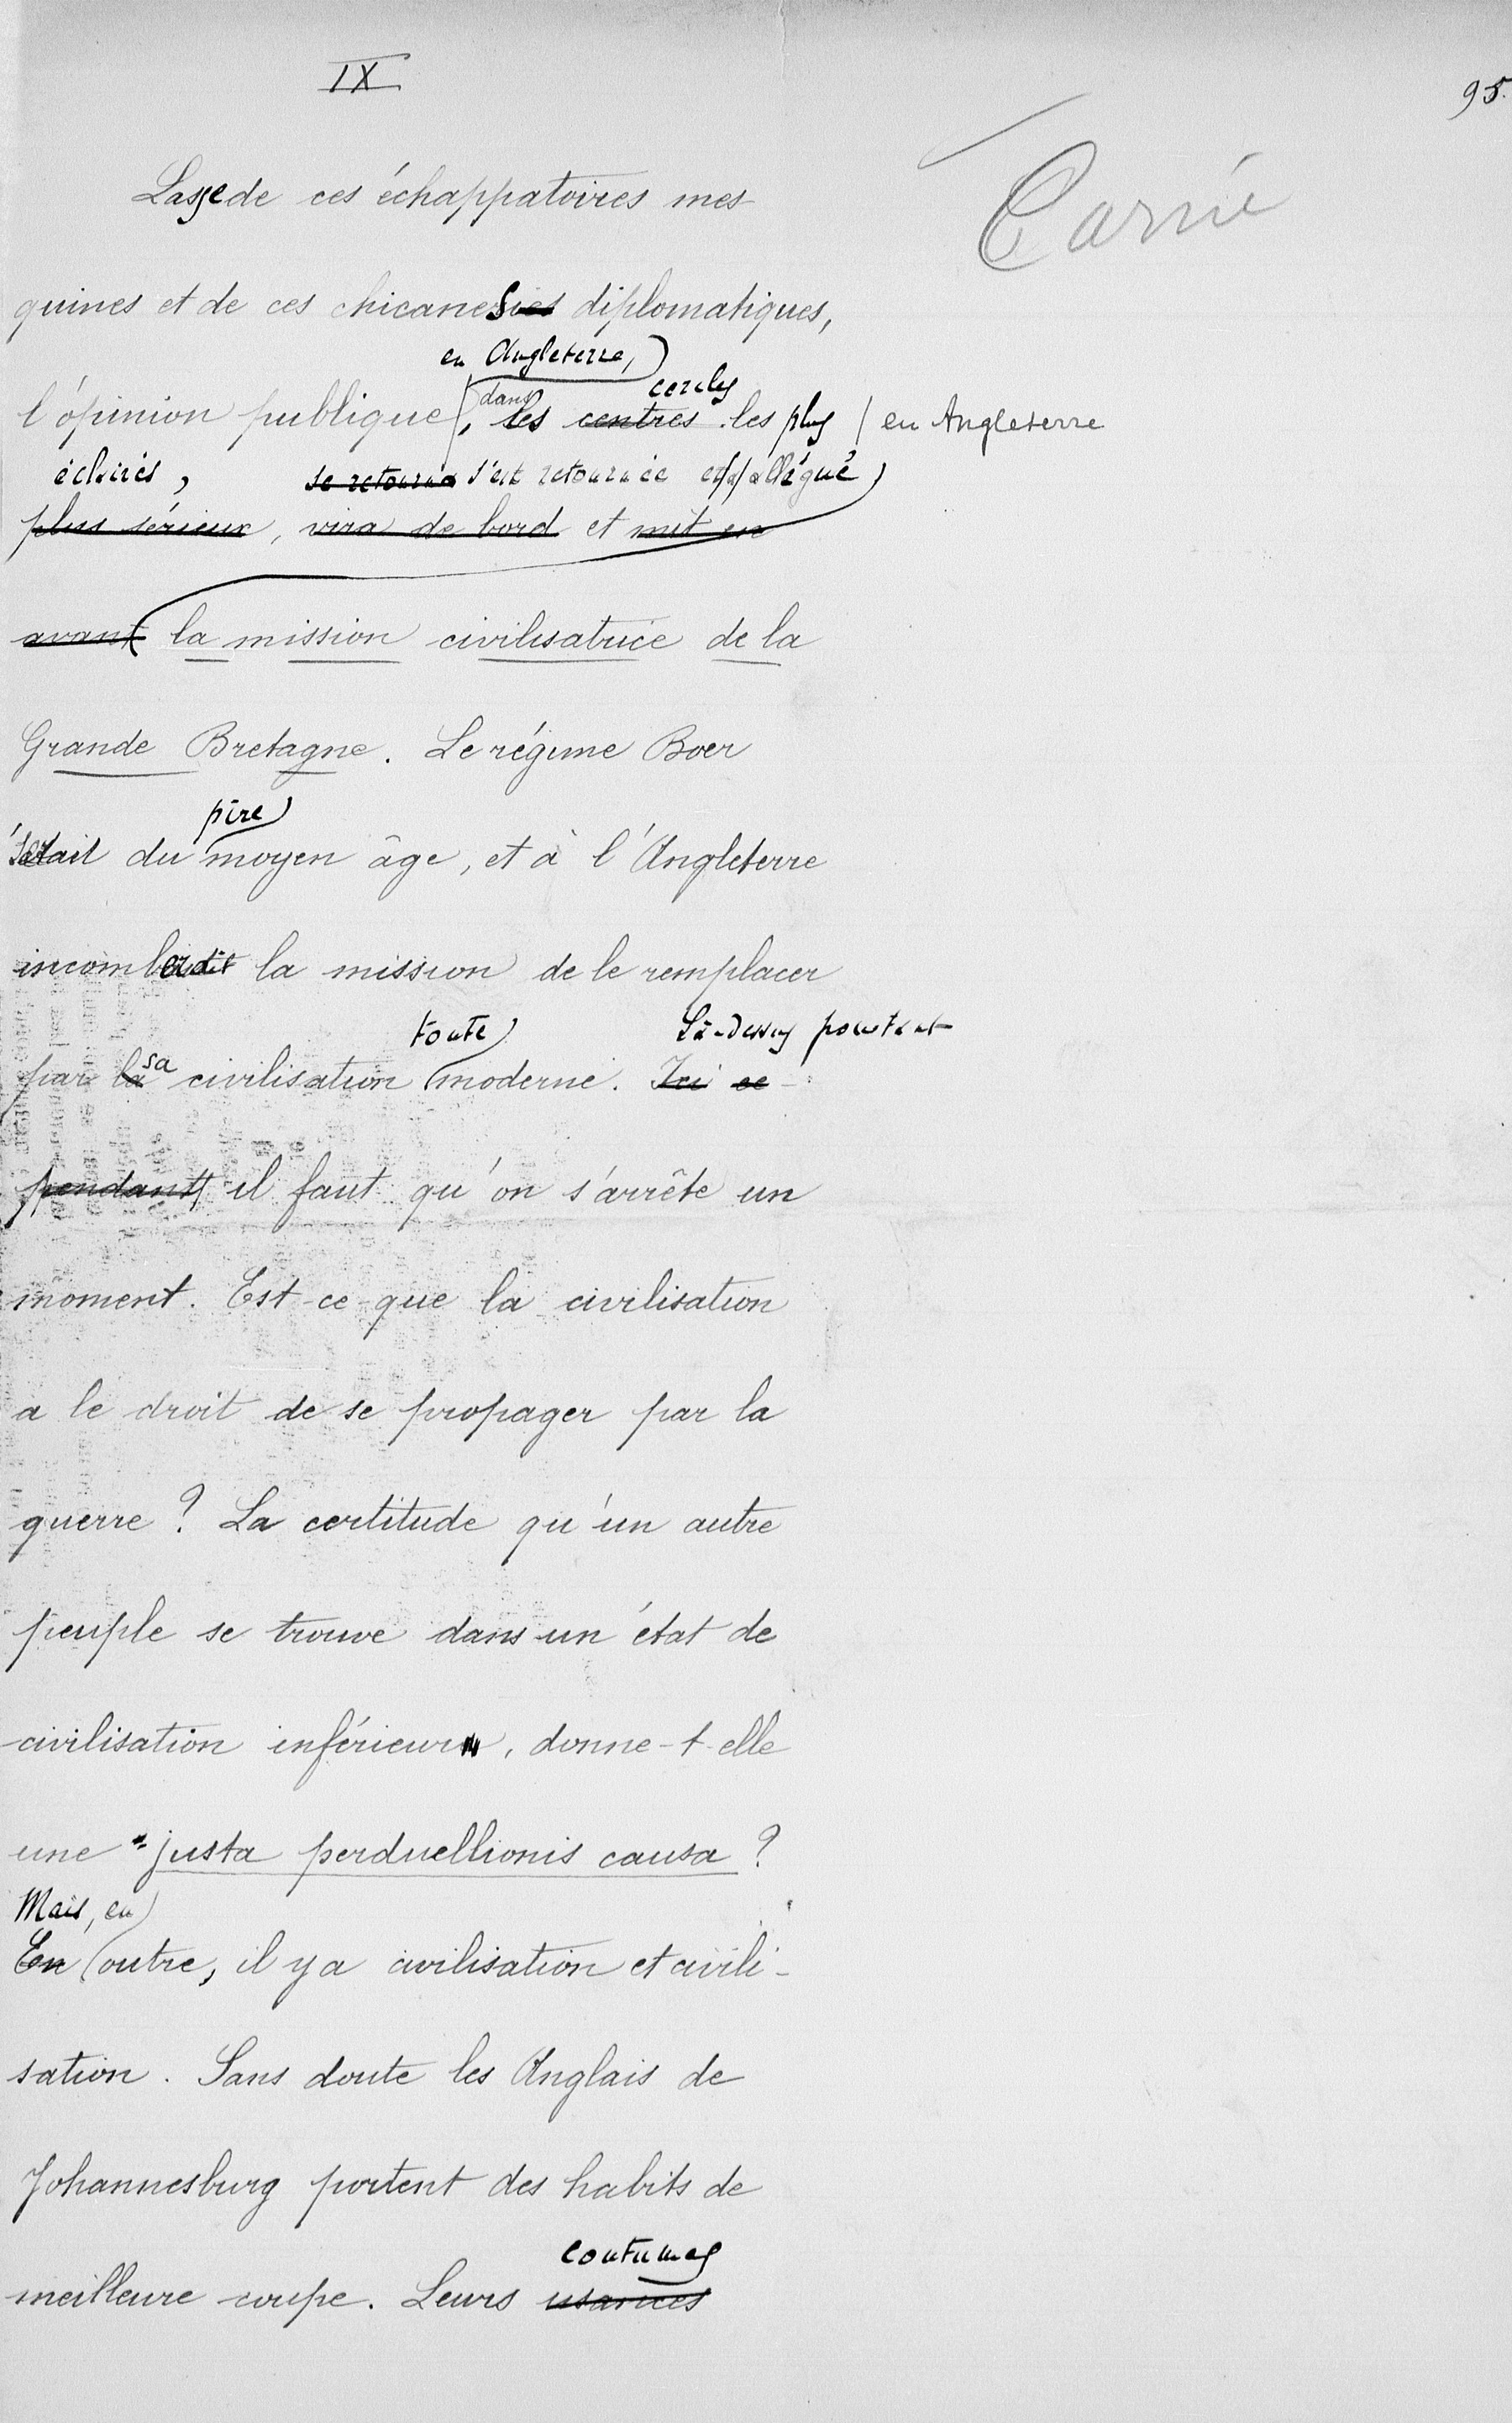 IX
95.
Carrié
Lasse de ces échappatoires mes
quines et de ces chicanes diplomatiques,
en Angleterre,
dans cercles
l'opinion publique, les centres les plus / en Angleterre
éclairés, se retourna s'est retournée et a allégué
plus sérieux, vira de bord et mit en
avant la mission civilisatrice de la
Grande Bretagne. Le régime Boer
pire
était du moyen âge, et à l'Angleterre
la mission de le remplacer
toute Là-dessus pourtant
par la sa civilisation moderne. Ici ce-
pendant il faut qu'on s'arrête un
moment. Est-ce-que la civilisation
a le droit de se propager par la
guerre ? La certitude qu'un autre
peuple se trouve dans un état de
civilisation inférieure, donne-t-elle
une justa perduellionis causa ?
Mais, en
En outre, il y a civilisation et civili-
sation. Sans doute les Anglais de
Johannesburg portent des habits de
coutumes
meilleure coupe. Leurs usances